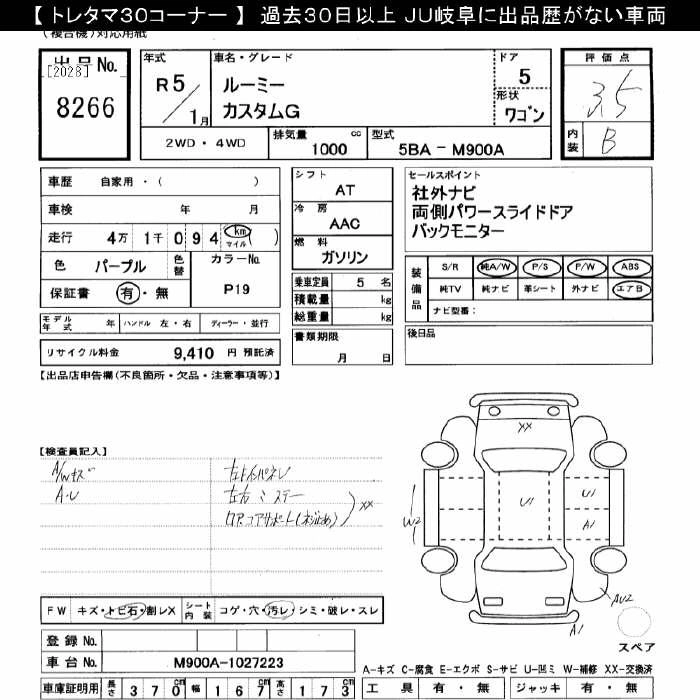 【 トレタマ30コーナー 】 過去30日以上 JU岐阜に出品歴がない車両
(複合機)対応用紙
出品No.
[2028]
8266
年式
R5/1月
車名・グレード
ルーミー
カスタムG
ドア
5
形状
ワゴン
評価点
3.5
内装
B
2WD・4WD
排気量 cc
1000
型式
5BA-M900A
車歴 自家用・( )
車検 年 月
走行 4万 1千 0 9 4 km マイル ( )
色 パープル 色替 カラーNo.
保証書 有・無 P19
モデル年式 年 ハンドル 左・右 ディーラー・並行
リサイクル料金 9,410 円 預託済
シフト AT
冷房 AAC
燃料 ガソリン
乗車定員 5 名
積載量 kg
総重量 kg
書類期限
月 日
セールスポイント
社外ナビ
両側パワースライドドア
バックモニター
装備品
S/R 純A/W P/S P/W ABS
純TV 純ナビ 革シート 外ナビ エアB
ナビ型番:
後日品
【出品店申告欄(不良箇所・欠品・注意事項等)】
【検査員記入】
A/Wキズ
A・U
XX
XX
U1
U1
A1
W2
AU2
A1
スペア
FW キズ・トビ石・割レX シート内装 コゲ・穴・汚レ・シミ・破レ・スレ
登録No.
車台No. M900A-1027223
車庫証明用 長さ 370cm 幅 167cm 高さ 173cm
A-キズ C-腐食 E-エクボ S-サビ U-凹ミ W-補修 XX-交換済
工具 有・無 ジャッキ 有・無